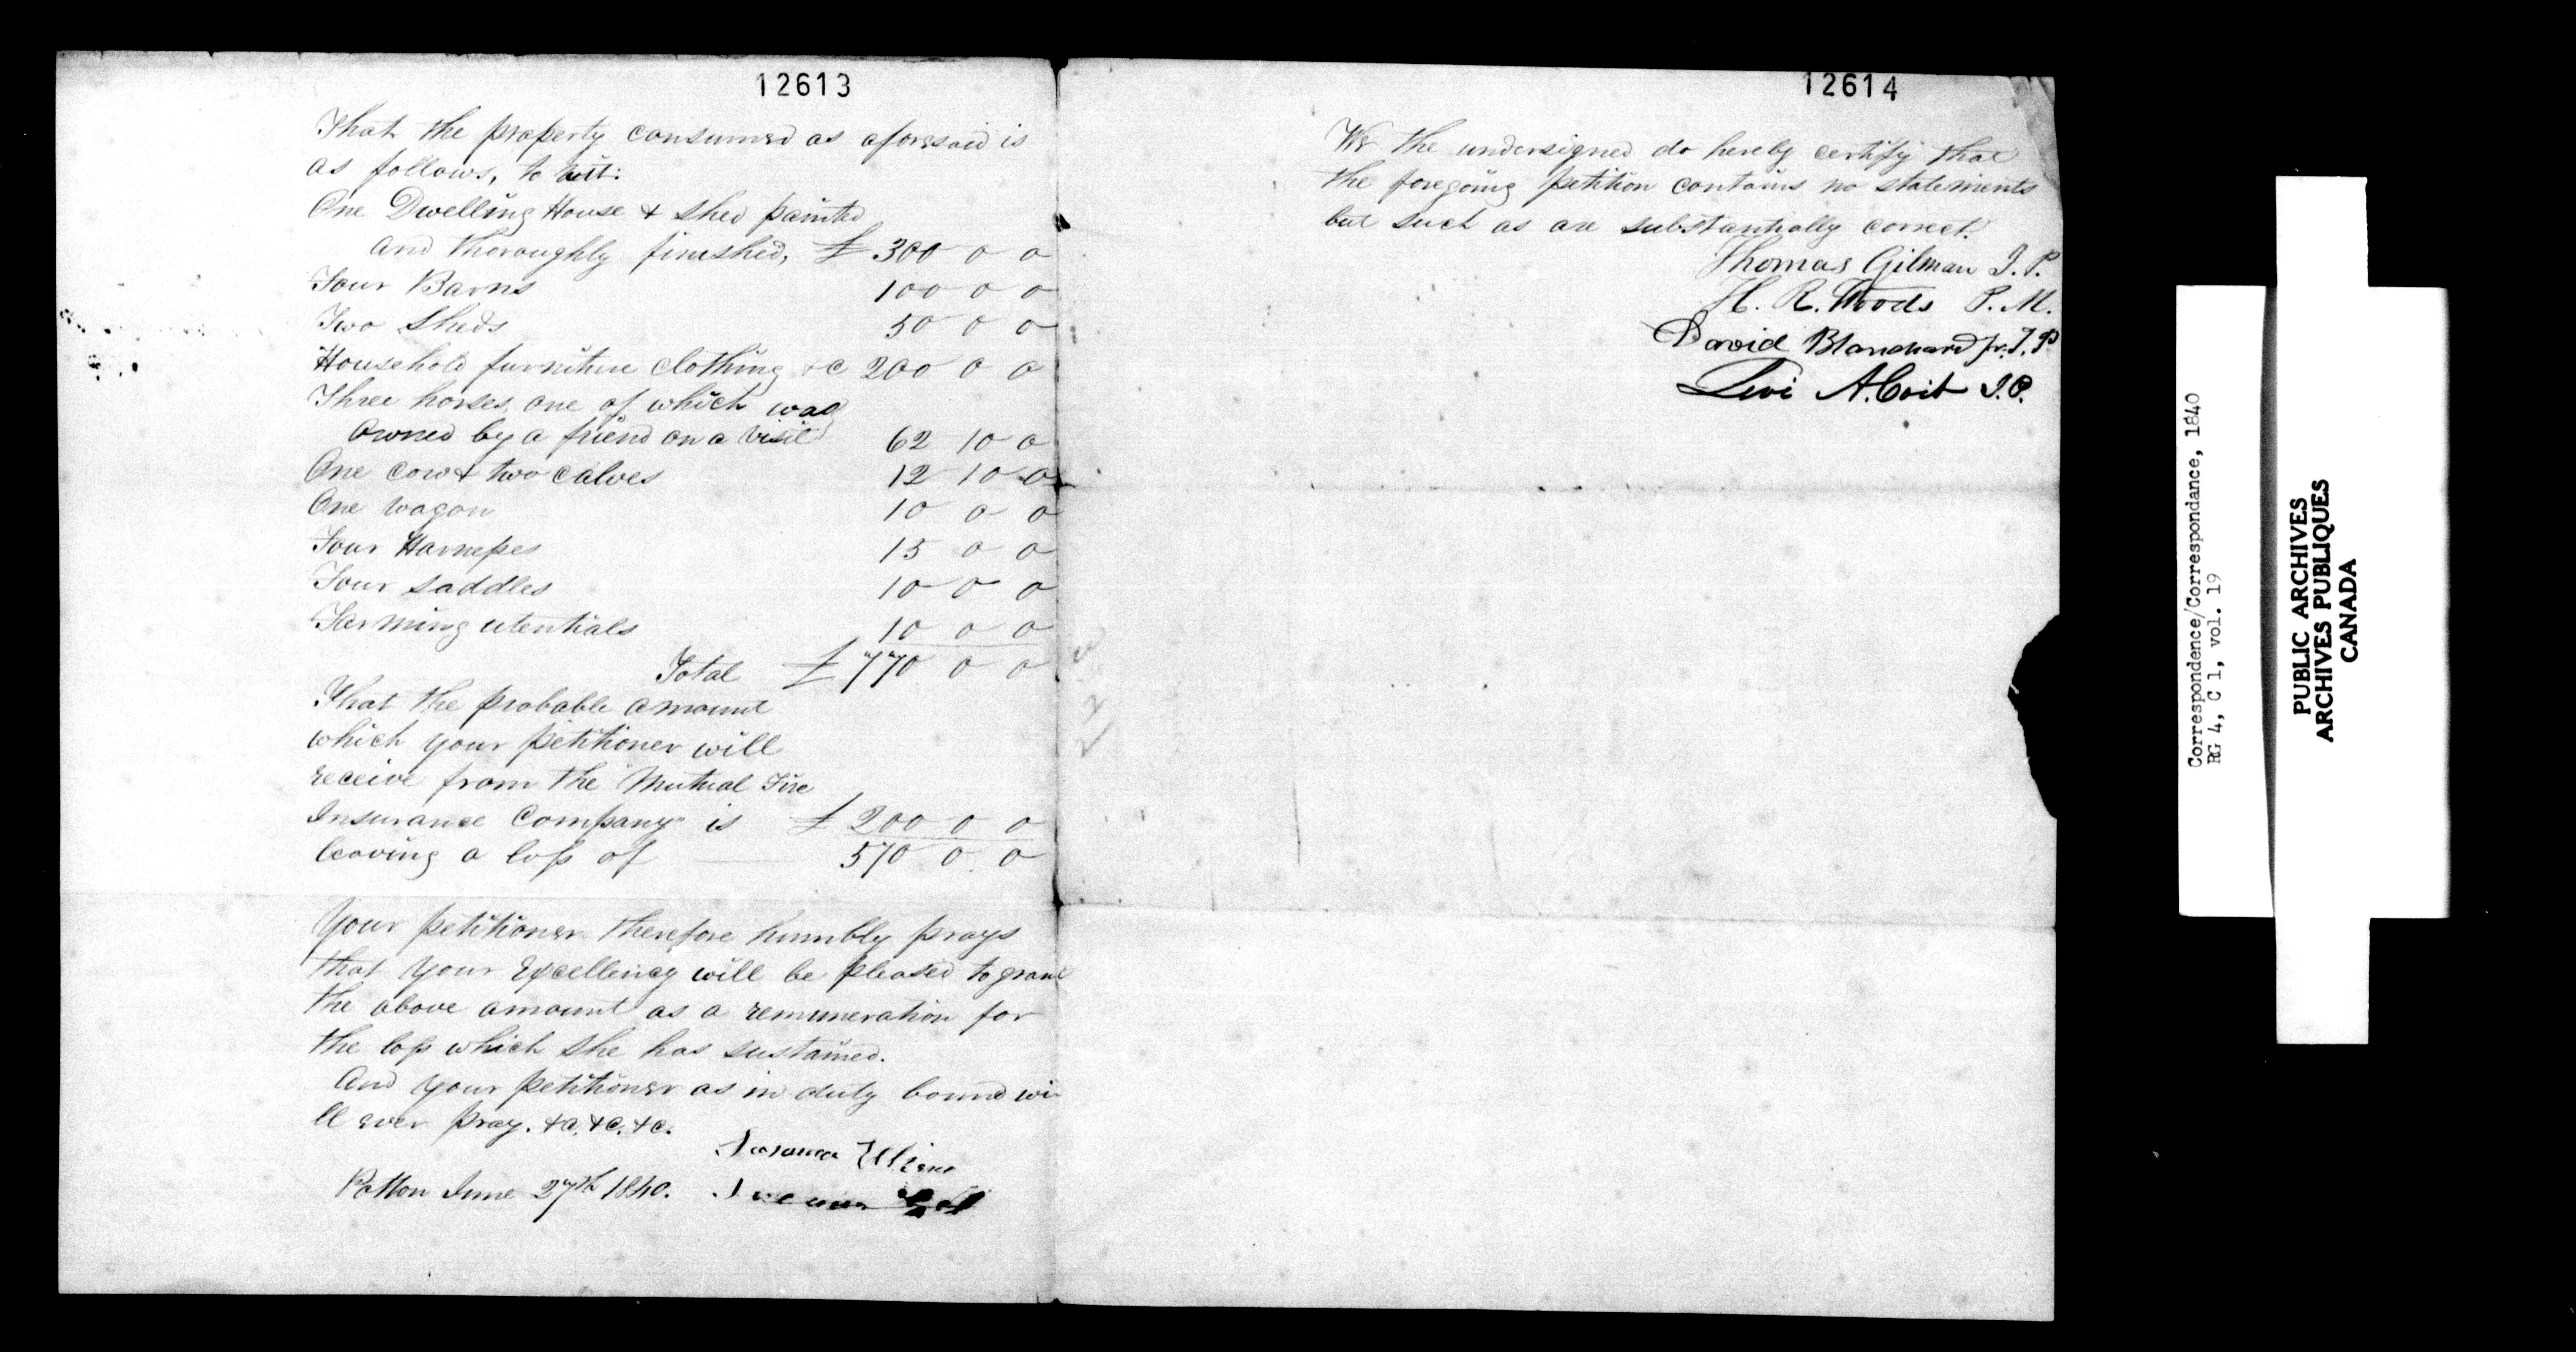 12613
That the property consumed as aforesaid is
as follows, to wit:
One Dwelling House & shed painted
and thoroughly finished, £ 300 0 0
Four Barns 100 0 0
Two Sheds 50 0 0
Household furniture clothing &c 200 0 0
Three horses, one of which was
owned by a friend on a visit 62 10 0
One cow & two calves 12 10 0
One wagon 10 0 0
Four Harnesses 15 0 0
Four saddles 10 0 0
Farming utentials 10 0 0
Total £ 770 0 0
That the probable amount
which your petitioner will
receive from the "Mutual Fire
Insurance Company" is £ 200 0 0
leaving a loss of 570 0 0
Your petitioner therefore humbly prays
that your Excellency will be pleased to grant
the above amount as a remuneration for
the loss which she has sustained.
And your petitioner as in duty bound wi
ll ever pray. &c. &c. &c.
Potton June 27th 1840.
12614
We the undersigned do hereby certify that
the foregoing petition contains no statements
but such as are substantially correct.
Thomas Gilman J. P.
H. R. Woods P. M.
David Blanchard Jr. J. P
Levi A. Coit J. P.
Correspondence/Correspondance, 1840
RG 4, C 1, vol. 19
PUBLIC ARCHIVES
ARCHIVES PUBLIQUES
CANADA